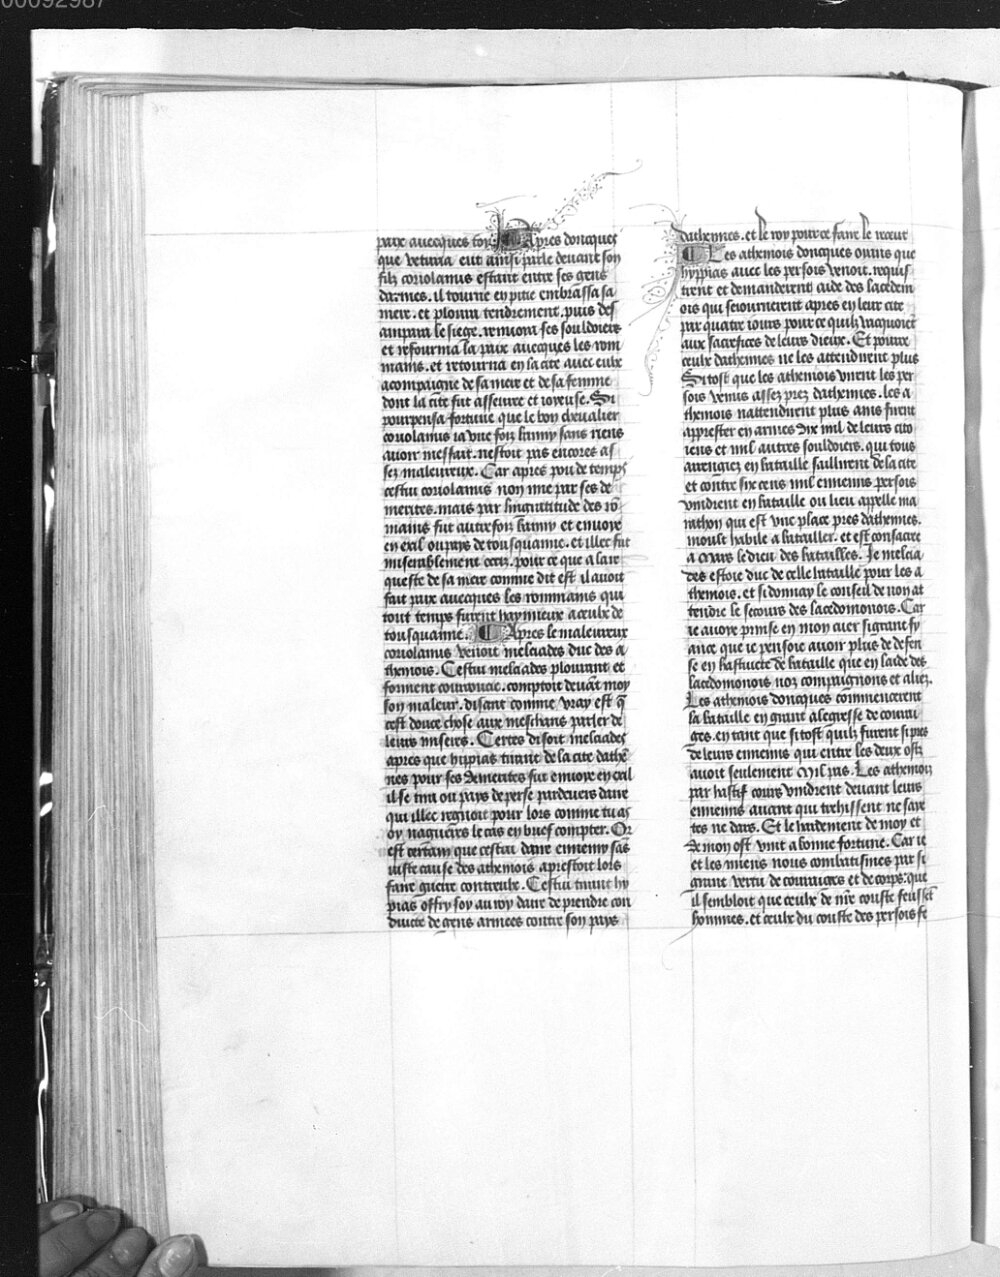 00092987
paix auecques toy Apres doncques
que veturia eut ainsi parle deuant son
filz coriolanus estant entre ses gens
darmes. il tourne en pitie embrassa sa
mere. et ploura tendrement. puis des
ampara le siege. renuoia ses souldoiers
et refourma la paix auecques les rom
mains. et retourna en la cite auec eulx
acompaigne de sa mere et de sa femme
dont la cite fut asseuree et ioyeuse. Si
pourpensa fortune que le bon cheualier
coriolanus ia vne foiz banny sans riens
auoir meffait. nestoit pas encores as
sez maleureux. Car apres pou de temps
cestui coriolanus non mie par ses de
merites. mais par lingratitude des rō
mains fut autrefoiz banny et enuoye
en exil ou pays de tousquanne. et illec fut
miserablement occiz. pour ce que a la re
queste de sa mere comme dit est il auoit
fait paix auecques les rommains qui
tout temps furent hay mieux a ceulx de
tousquanne. Apres le maleureux
coriolanus venoit melciades duc des a
thenois. Cestui melciades plourant et
forment courroucie. comptoit deuāt moy
son maleur. disant comme vray est q̄
cest doulce chose aux meschans parler de
leurs miseres. Certes disoit melciades
apres que hypias tirant de la cite dathē
nes pour ses demerites fut enuoye en exil
il se tira ou pays de perse par deuers daire
qui illec regnoit pour lors comme tu as
oy nagueres le cas en brief compter. Or
est certain que cestui daire ennemy sās
iuste cause des athenois aprestoit lors
faire guerre contre eulx. Cestui tirant hy
pias offry soy au roy daire de prendre con
duicte de gens armees contre son pays
dathennes. et le roy pour ce faire le receut
Les athenois doncques oyans que
hyppias auec les persois venoit. requis
trent et demanderent aide des lacedem
ois qui seiournerent apres en leur cite
par quatre iours pour ce quilz vacquoiēt
aux sacrefices de leurs dieux. Et pour ce
ceulx dathennes ne les attendirent plus
Si tost que les athenois virent les per
sois venus assez prez dathennes. les a
thenois nattendirent plus ains firent
apprester en armes dix mil de leurs cito
iens et mil autres souldoiers. qui tous
arrengiez en bataille saillirent de la cite
et contre six cens mil ennemis persois
vindrent en bataille ou lieu appelle ma
rathon qui est vne place pres dathennes.
moult habile a batailler. et est consacre
a Mars le dieu des batailles. Je melcia
des estoie duc de celle bataille pour les a
thenois. et si donnay le conseil de non at
tendre le secours des lacedomonois. Car
ie auoye prinse en mon cuer si grant fy
ance que ie pensoie auoir plus de deffen
se en hastiuete de bataille que en laide des
lacedomonois noz compaignons et aliez.
Les athenois doncques cōmmencerent
la bataille en grant alegresse de coura
ges. en tant que si tost quilz furent si pres
de leurs ennemis qui entre les deux ostz
auoit seulement Mil pas. Les athenois
par hastif cours vindrent deuant leurs
ennemis auant qui treississent ne saie
tes ne dars. Et le hardement de moy et
de mon ost vint a bonne fortune. Car ie
et les miens nous combatismes par si
grant vertu de couraiges et de corps: que
il sembloit que ceulx de nr̄e couste feusset
hommes. et ceulx du couste des persois fe